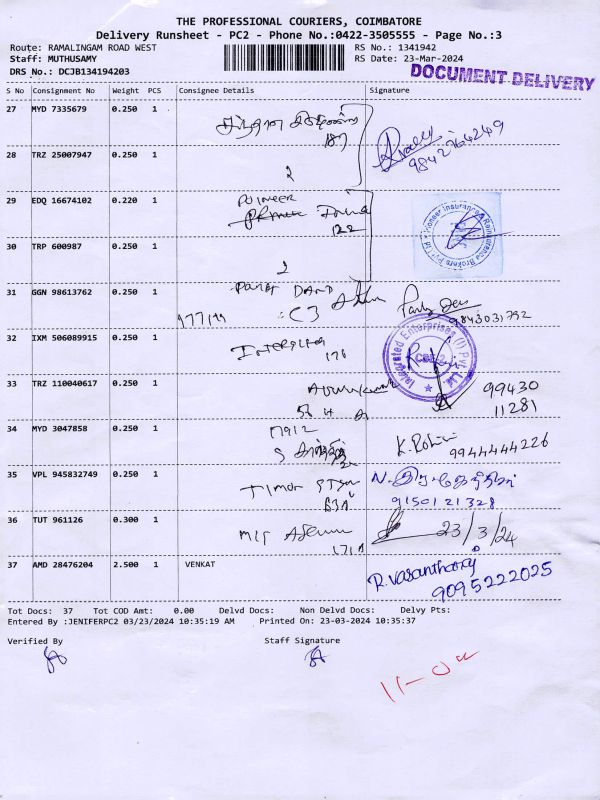 THE PROFESSIONAL COURIERS, COIMBATORE
Delivery Runsheet - PC2 - Phone No.:0422-3505555 - Page No.:3
Route: RAMALINGAM ROAD WEST
Staff: MUTHUSAMY
DRS No.: DCJB134194203
RS No.: 1341942
RS Date: 23-Mar-2024
DOCUMENT DELIVERY
S No Consignment No Weight PCS Consignee Details Signature
27 MYD 7335679 0.250 1
187
9842764249
28 TRZ 25007947 0.250 1
2
29 EDQ 16674102 0.220 1
122
Pioneer Insurance & Reinsurance Brokers Pvt Ltd
30 TRP 600987 0.250 1
2
31 GGN 98613762 0.250 1
C3
9843031792
32 IXM 506089915 0.250 1
176
Integrated Enterprises (I) Pvt. Ltd.
CBE-2
33 TRZ 110040617 0.250 1
99430
11281
34 MYD 3047858 0.250 1
K. Rohini
9944444226
35 VPL 945832749 0.250 1
9150121328
36 TUT 961126 0.300 1
171A
23/3/24
37 AMD 28476204 2.500 1 VENKAT
R. Vasanthamy
9095222025
Tot Docs: 37 Tot COD Amt: 0.00 Delvd Docs: Non Delvd Docs: Delvy Pts:
Entered By :JENIFERPC2 03/23/2024 10:35:19 AM Printed On: 23-03-2024 10:35:37
Verified By Staff Signature